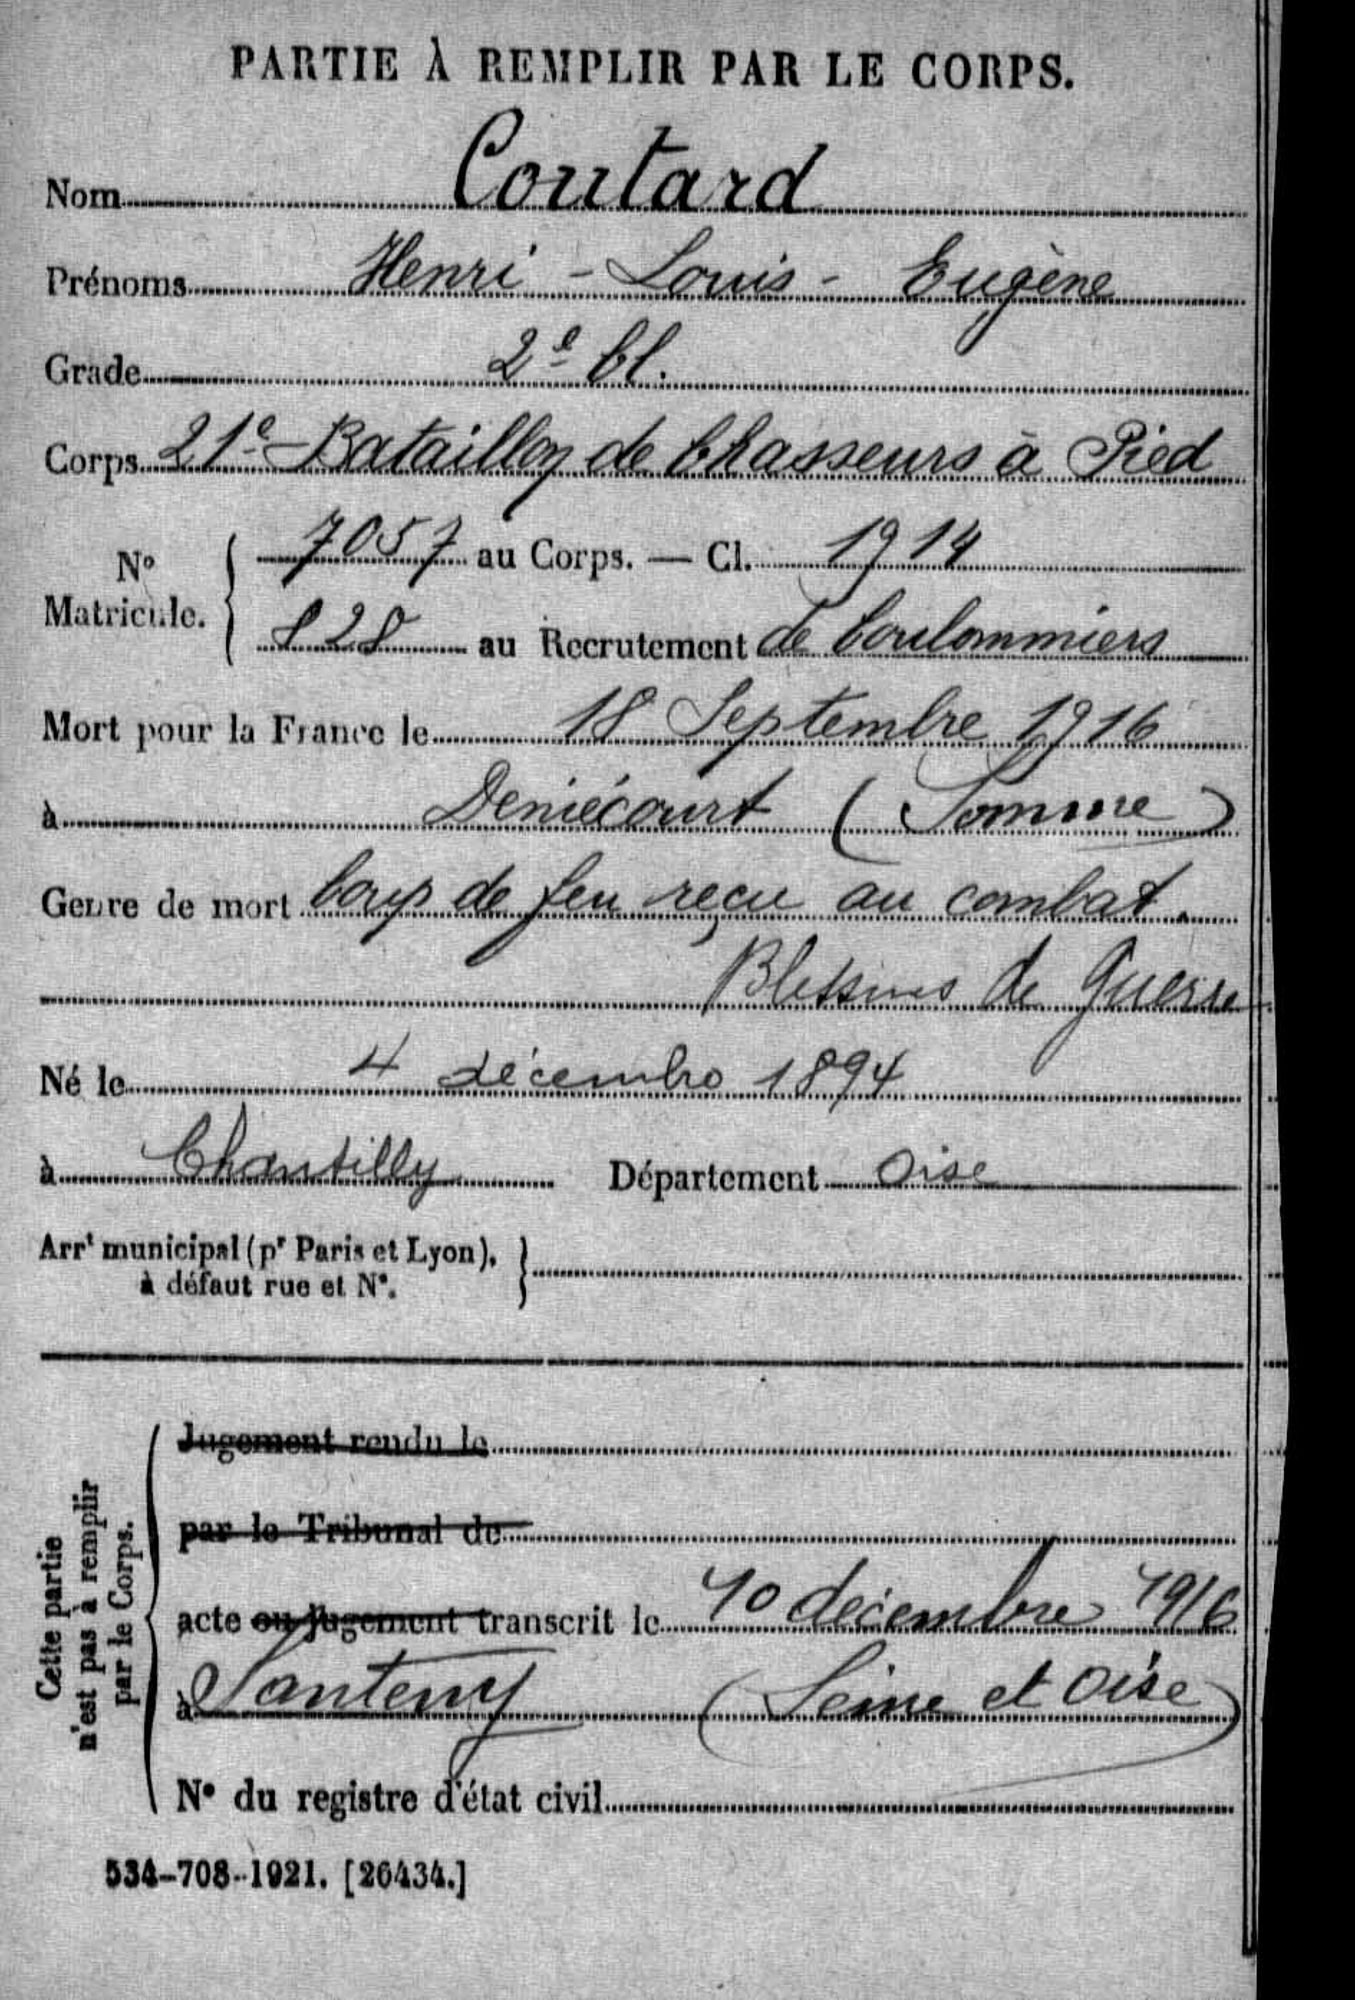 PARTIE À REMPLIR PAR LE CORPS.
Nom Coutard
Prénoms Henri - Louis - Eugène
Grade 2e Cl.
Corps 21e Bataillon de Chasseurs à Pied
No Matricule. { 7057 au Corps. — Cl. 1914
828 au Recrutement de Coulommiers
Mort pour la France le 18 Septembre 1916
à Deniécourt (Somme)
Genre de mort Coup de feu reçu au combat.
Blessures de Guerre
Né le 4 décembre 1894
à Chantilly Département Oise
Arrt municipal (pr Paris et Lyon), à défaut rue et No. }
Cette partie n'est pas à remplir par le Corps.
Jugement rendu le
par le Tribunal de
acte ou jugement transcrit le 10 décembre 1916
à Santeny (Seine et Oise)
No du registre d'état civil
534-708-1921. [26434.]